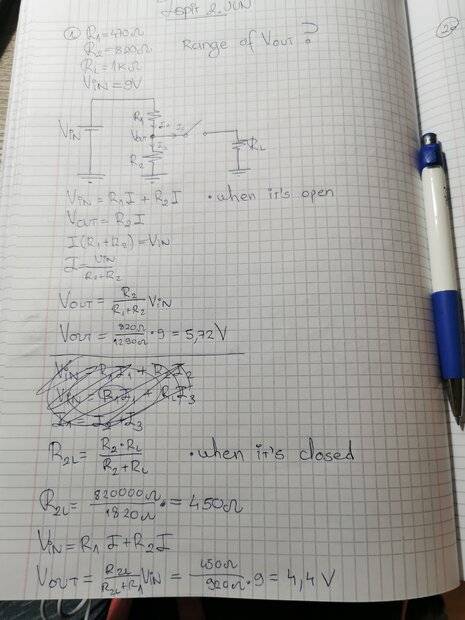 ① R₁=470Ω
R₂=820Ω
R_L=1kΩ
V_IN=9V
Range of V_OUT?
V_IN
R₁
V_OUT
R₂
R_L
V_IN = R₁I + R₂I • when it's open
V_OUT = R₂I
I(R₁+R₂)=V_IN
I = V_IN / R₁+R₂
V_OUT = R₂ / R₁+R₂ V_IN
V_OUT = 820Ω / 1290Ω • 9 = 5,72V
V_IN = R₁I₁ + R₂I₂
V_IN = R₁I₁ + R_LI₃
I₁ = I₂ + I₃
R₂L = R₂•R_L / R₂+R_L • when it's closed
R₂L = 820000Ω / 1820Ω • = 450Ω
V_IN = R₁I + R₂I
V_OUT = R₂L / R₂L+R₁ V_IN = 450Ω / 920Ω • 9 = 4,4V